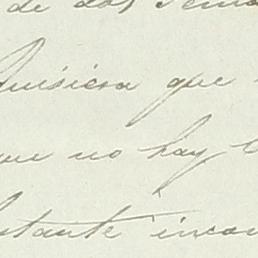 de dos sema
Quisiera que
que no hay
bastante incon